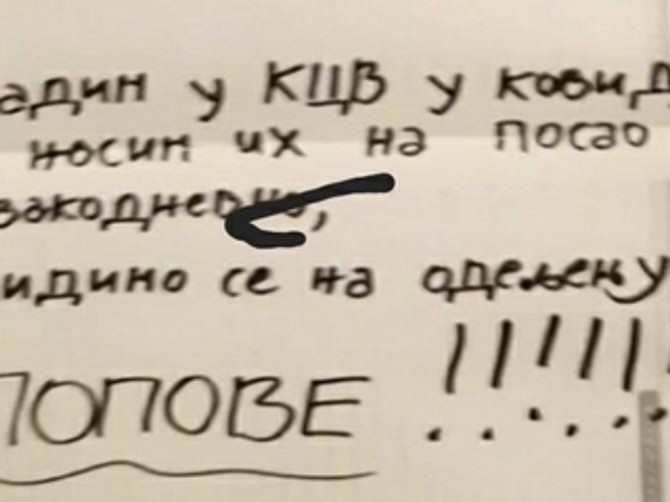 адин у КЦВ у ковид
носим их на посао
свакодневно,
идимо се на одељењу
ЛОПОВЕ !!!!!!